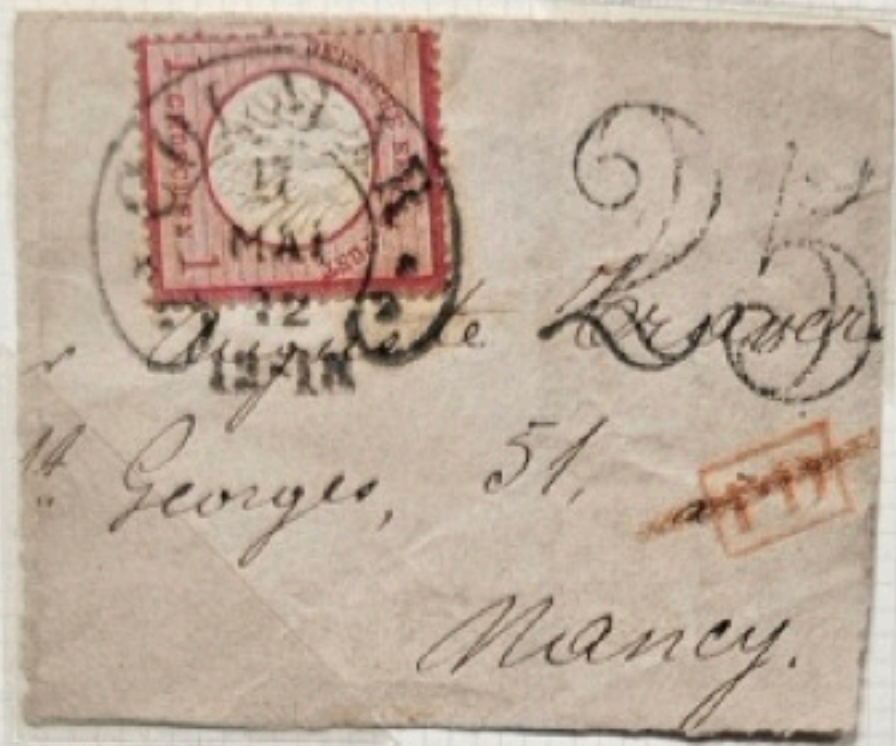 DEUTSCHE REICHS-POST
1 GROSCHEN 1
17
MAI
72
12-1N
25
Auguste
St Georges, 51,
PD
Nancy.